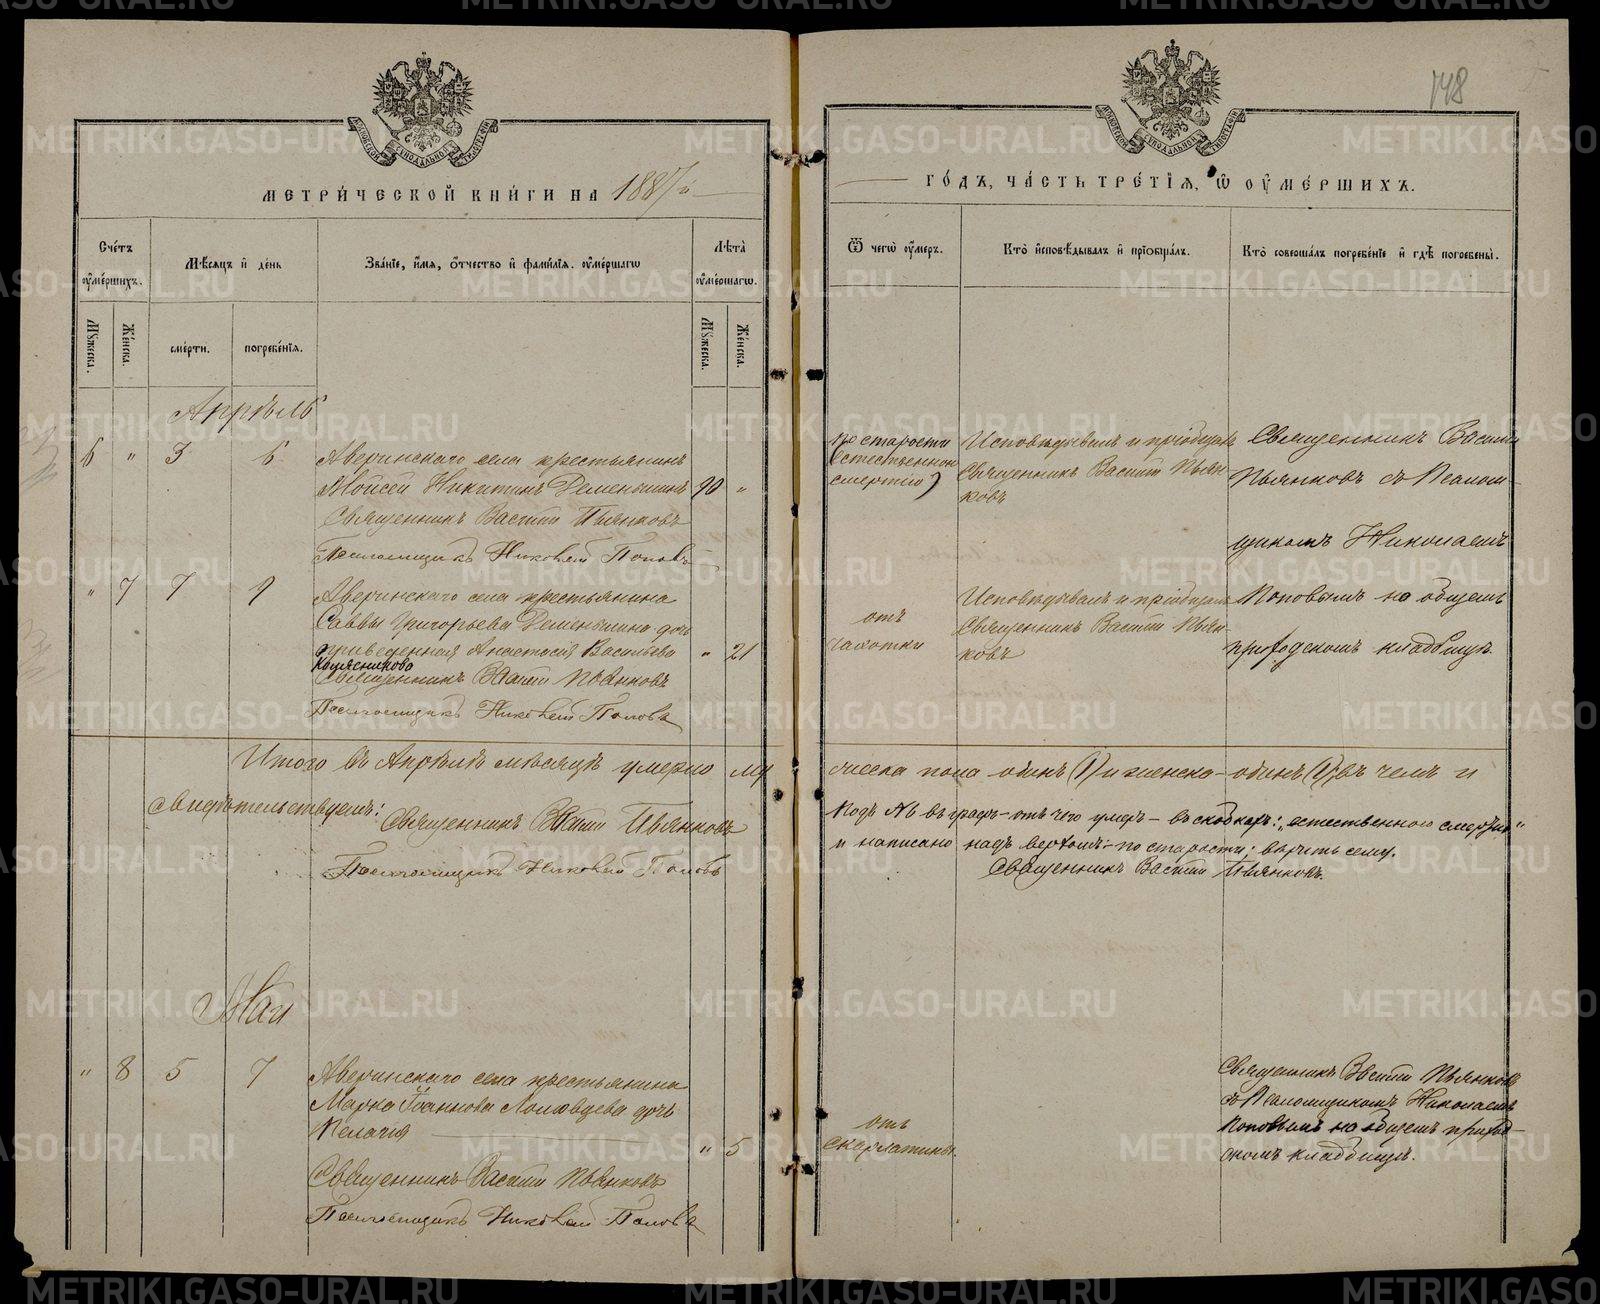 748
МЕТРИ́ЧЕСКОЙ КНИ́ГИ НА 1887й
ГО́ДЪ, ЧА́СТЬ ТРЕ́ТІЯ, Ѿ ОУМЕ́РШИХЪ.
Сче́тъ оуме́ршихъ.
Мѣсяцъ и де́нь
Зва́ніе, и́мя, о́тчество и фами́лія оуме́ршагѡ
Лѣта̀ оуме́ршагѡ.
Ѿ чегѡ̀ оу́меръ.
Кто̀ исповѣ́дывалъ и пріобща́лъ.
Кто̀ соверша́лъ погребе́ніе и гдѣ̀ погребены̀.
Мꙋ́жеска.
Же́нска.
сме́рти.
погребе́нія.
Мꙋ́жеска.
Же́нска.
Апрѣль
6 " 3 6
Аверинскаго села крестьянинъ
Мойсей Никитинъ Деменьшинъ 90 "
Священникъ Василій Пьянковъ
Псаломщикъ Николай Поповъ
по старости
(естественною
смертію)
Исповѣдывалъ и пріобщалъ
Священникъ Василій Пьян-
ковъ
Священникъ Василій
Пьянковъ съ Псалом-
щикомъ Николаемъ
Поповымъ на общемъ
приходскомъ кладбищѣ.
" 7 7 9
Аверинскаго села крестьянина
Саввы Григорьева Деменьшина дочь
приведенная Анастасія Васильева " 21
Колясникова
Священникъ Василій Пьянковъ
Псаломщикъ Николай Поповъ
отъ
чахотки
Исповѣдывалъ и пріобщалъ
Священникъ Василій Пьян-
ковъ
Итого въ Апрѣлѣ мѣсяцѣ умерло му
жеска пола одинъ (1) и женска - одинъ (1) въ чемъ и
свидѣтельствуемъ:
Священникъ Василій Пьянковъ
Псаломщикъ Николай Поповъ
Подъ № 6 въ графѣ - отъ чего умеръ - въ скобкахъ: „естественною смертію"
и написано надъ верхомъ - по старости: вѣрить сему.
Священникъ Василій Пьянковъ.
Май
" 8 5 7
Аверинскаго села крестьянина
Марка Іоаннова дочь
Пелагія " 5
Священникъ Василій Пьянковъ
Псаломщикъ Николай Поповъ
отъ
скарлатины.
Священникъ Василій Пьянковъ
съ Псаломщикомъ Николаемъ
Поповымъ на общемъ приход-
скомъ кладбищѣ.
METRIKI.GASO-URAL.RU